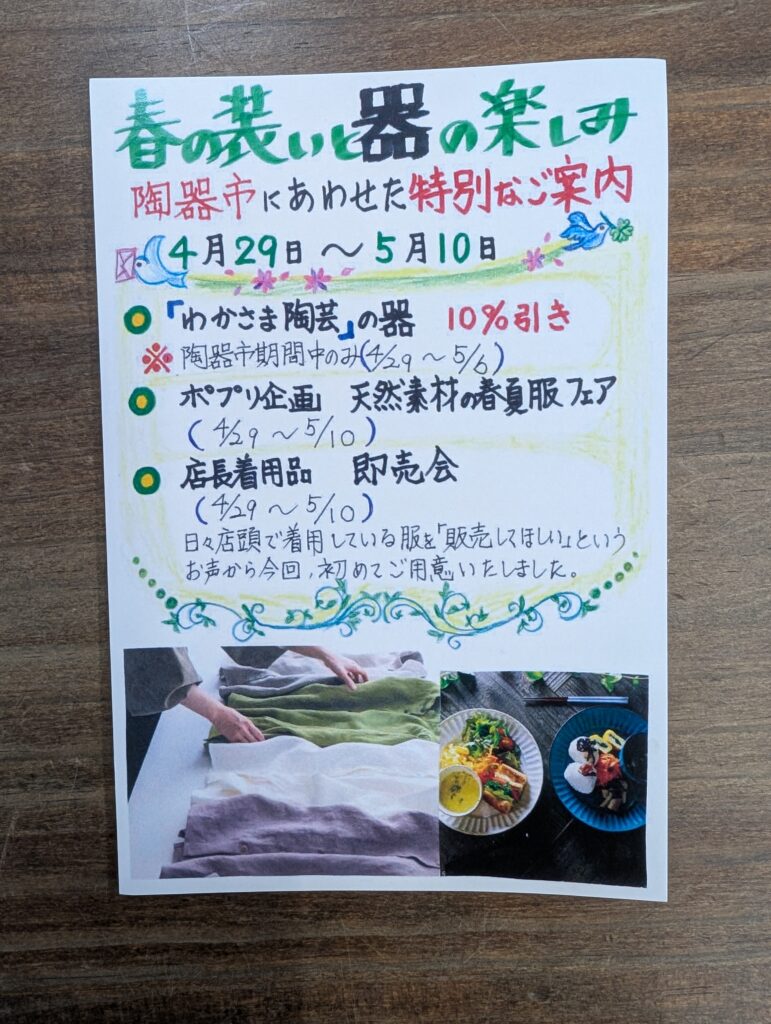 春の装いと器の楽しみ
陶器市にあわせた特別なご案内
4月29日～5月10日
「わかさま陶芸」の器 10%引き
※陶器市期間中のみ(4/29～5/6)
ポプリ企画 天然素材の春夏服フェア
(4/29～5/10)
店長着用品 即売会
(4/29～5/10)
日々店頭で着用している服を「販売してほしい」という
お声から今回、初めてご用意いたしました。